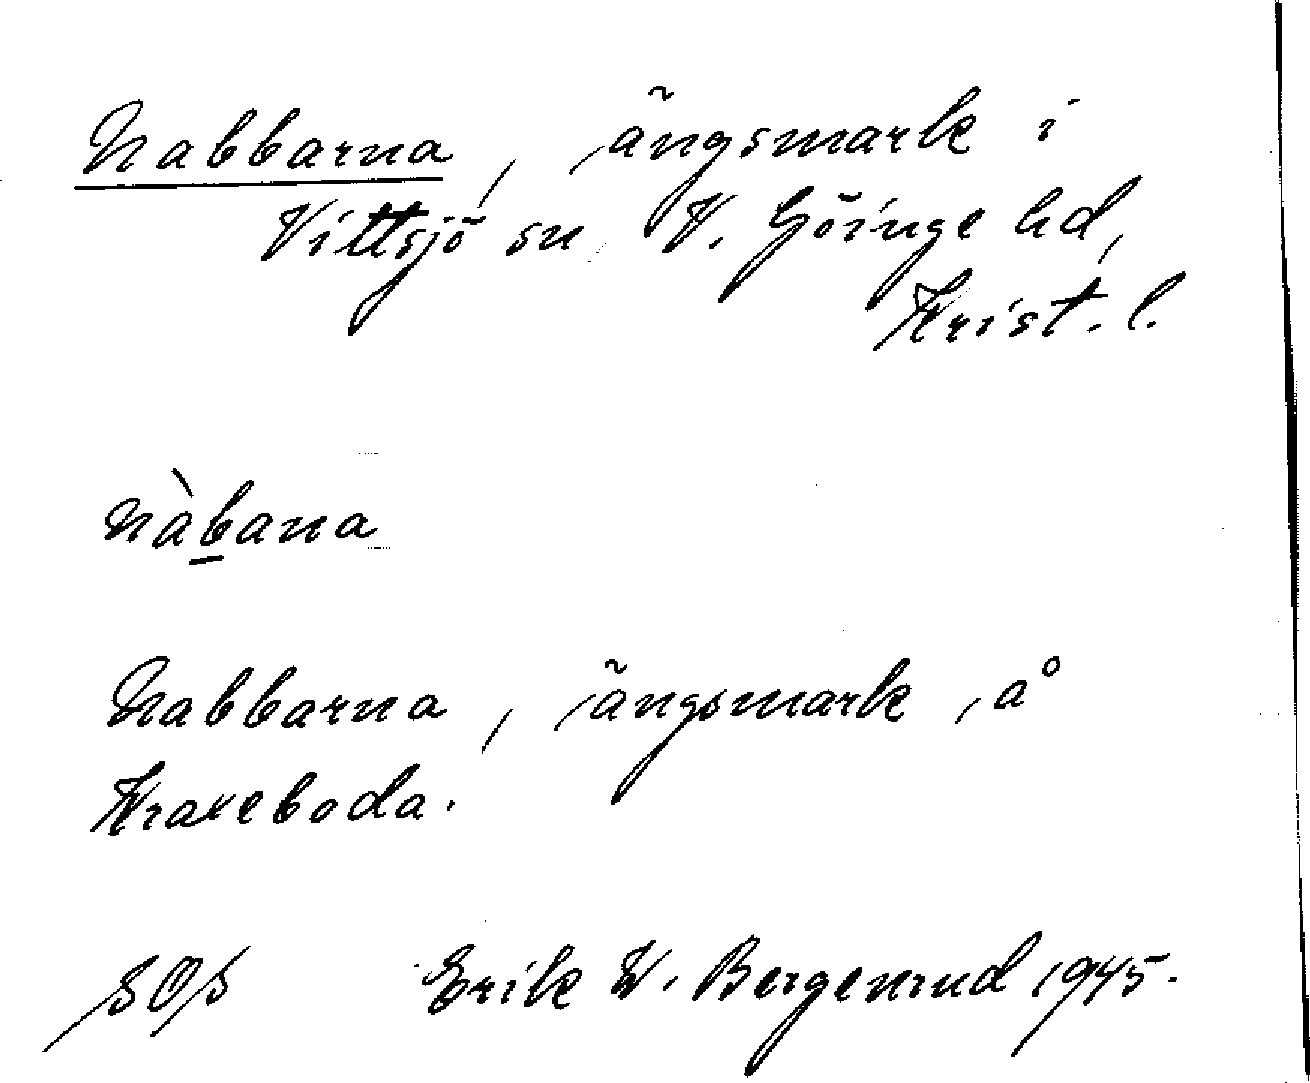 Nabbarna, ängsmark i
Vittsjö sn V. Göinge hd,
Krist. l.
nàbana
Nabbarna, ängsmark, å
Kraxeboda.
SOS Erik W. Bergenrud 1945.